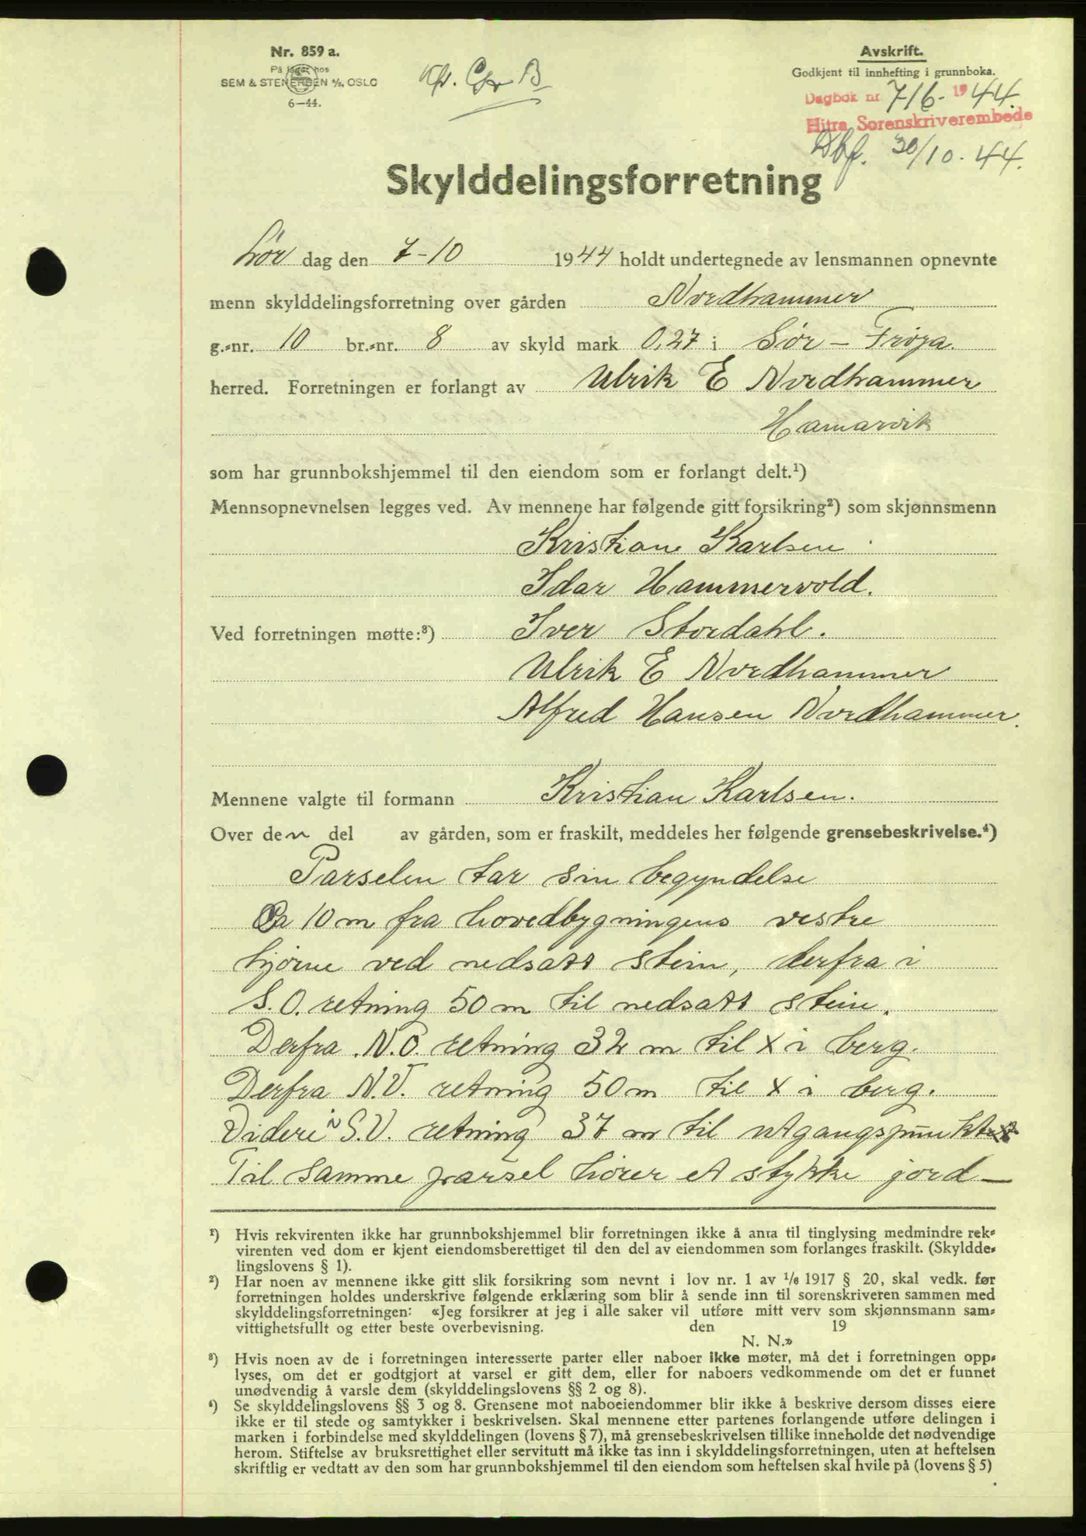 Nr. 859 a.
På lager hos
SEM & STENERSEN A/S, OSLO
6—44.
Avskrift.
Godkjent til innhefting i grunnboka.
Dagbok nr 716- 1944.
Hitra Sorenskriverembede
30/10. 44.
Skylddelingsforretning
Lør dag den 7-10 1944 holdt undertegnede av lensmannen opnevnte
menn skylddelingsforretning over gården Nordhammer
g.-nr. 10 br.-nr. 8 av skyld mark 0,27 i Sør - Frøya.
herred. Forretningen er forlangt av Ulrik E Nordhammer
Hamarvik
som har grunnbokshjemmel til den eiendom som er forlangt delt.¹)
Mennsopnevnelsen legges ved. Av mennene har følgende gitt forsikring²) som skjønnsmenn
Kristian Karlsen
Idar Hammervold.
Ved forretningen møtte:³) Iver Stordahl.
Ulrik E Nordhammer
Alfred Hansen Nordhammer.
Mennene valgte til formann Kristian Karlsen.
Over den del av gården, som er fraskilt, meddeles her følgende grensebeskrivelse.⁴)
Parselen tar sin begyndelse
Ca 10 m fra hovedbygningens vestre
hjørne ved nedsatt stein, derfra i
S.O. retning 50 m til nedsatt stein.
Derfra N.O. retning 32 m til X i berg.
Derfra N.V. retning 50 m til X i berg.
Videre i S.V. retning 37 m til utgangspunktet
Til samme parsel hører et stykke jord—
¹) Hvis rekvirenten ikke har grunnbokshjemmel blir forretningen ikke å anta til tinglysing medmindre rek-
virenten ved dom er kjent eiendomsberettiget til den del av eiendommen som forlanges fraskilt. (Skyldde-
lingslovens § 1).
²) Har noen av mennene ikke gitt slik forsikring som nevnt i lov nr. 1 av 1/6 1917 § 20, skal vedk. før
forretningen holdes underskrive følgende erklæring som blir å sende inn til sorenskriveren sammen med
skylddelingsforretningen: «Jeg forsikrer at jeg i alle saker vil utføre mitt verv som skjønnsmann sam-
vittighetsfullt og etter beste overbevisning. den 19
N. N.»
³) Hvis noen av de i forretningen interesserte parter eller naboer ikke møter, må det i forretningen opp-
lyses, om det er godtgjort at varsel er gitt dem, eller for naboers vedkommende om det er funnet
unødvendig å varsle dem (skylddelingslovens §§ 2 og 8).
⁴) Se skylddelingslovens §§ 3 og 8. Grensene mot naboeiendommer blir ikke å beskrive dersom disses eiere
ikke er til stede og samtykker i beskrivelsen. Skal mennene etter partenes forlangende utføre delingen i
marken i forbindelse med skylddelingen (lovens § 7), må grensebeskrivelsen tillike inneholde det nødvendige
herom. Stiftelse av bruksrettighet eller servitutt må ikke tas inn i skylddelingsforretningen, uten at heftelsen
skriftlig er vedtatt av den som har grunnbokshjemmel til den eiendom som heftelsen skal hvile på (lovens § 5)